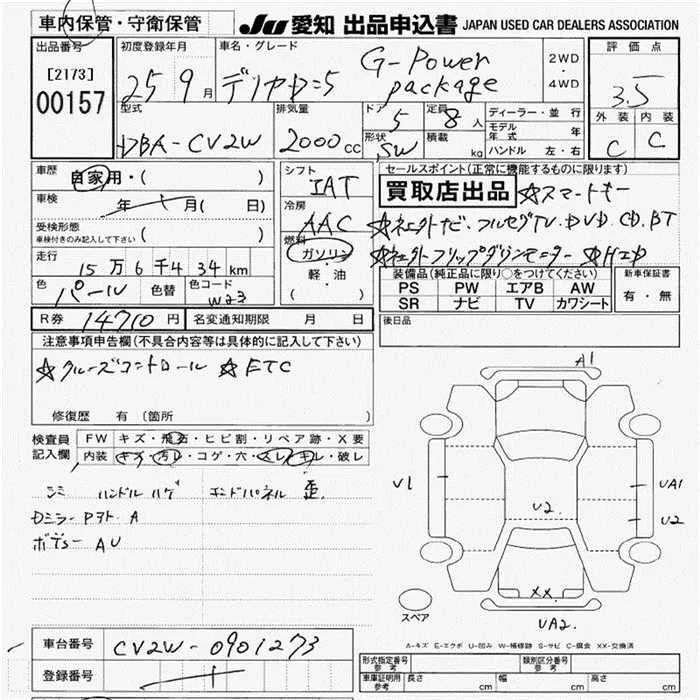 車内保管・守衛保管 JU 愛知 出品申込書 JAPAN USED CAR DEALERS ASSOCIATION
出品番号 初度登録年月 車名・グレード 評価点
[2173] 25 9月 デリカD:5 G-Power package 2WD・4WD 3.5
00157
型式 排気量 ドア 5 定員 8人 ディーラー・並行 外装 内装
DBA-CV2W 2000cc 形状 SW 積載 kg モデル年式 年 C C
ハンドル 左・右
車歴 自家用・( ) シフト IAT セールスポイント(正常に機能するものに限ります)
車検 年 月( 日) 冷房 AAC 買取店出品 ☆スマートキー
受検形態 ( ) ☆ネクストナビ、フルセグTV、DVD、CD、BT
車検付きのみ記入して下さい
走行 15万6千434km 燃料 ガソリン ・ 軽油 ( ) ☆ネクストフリップダウンモニター ☆HID
色 パール 色替 色コード W23 装備品(純正品に限り○をつけてください) 新車保証書
PS PW エアB AW 有・無
SR ナビ TV カワシート
R券 14710円 名変通知期限 月 日 後日品
注意事項申告欄(不具合内容等は具体的に記入して下さい)
☆クルーズコントロール ☆ETC
修復歴 有 (箇所 )
検査員記入欄 FW キズ・飛石・ヒビ割・リペア跡・X要
内装 キズ・汚レ・コゲ・穴・スレ・キレ・破レ
シミ ハンドルハゲ エンドパネル 歪
Dミラー Pドア A
ボデー AU
A1
V1
UA1
U2
U2.
XX.
UA2.
スペア
A-キズ E-エクボ U-凹み W-補修跡 S-サビ C-腐食 XX-交換済
車台番号 CV2W-0901273
登録番号
形式指定番号 参考 類別区分番号 参考
車庫証明用 参考 長さ cm 幅 cm 高さ cm